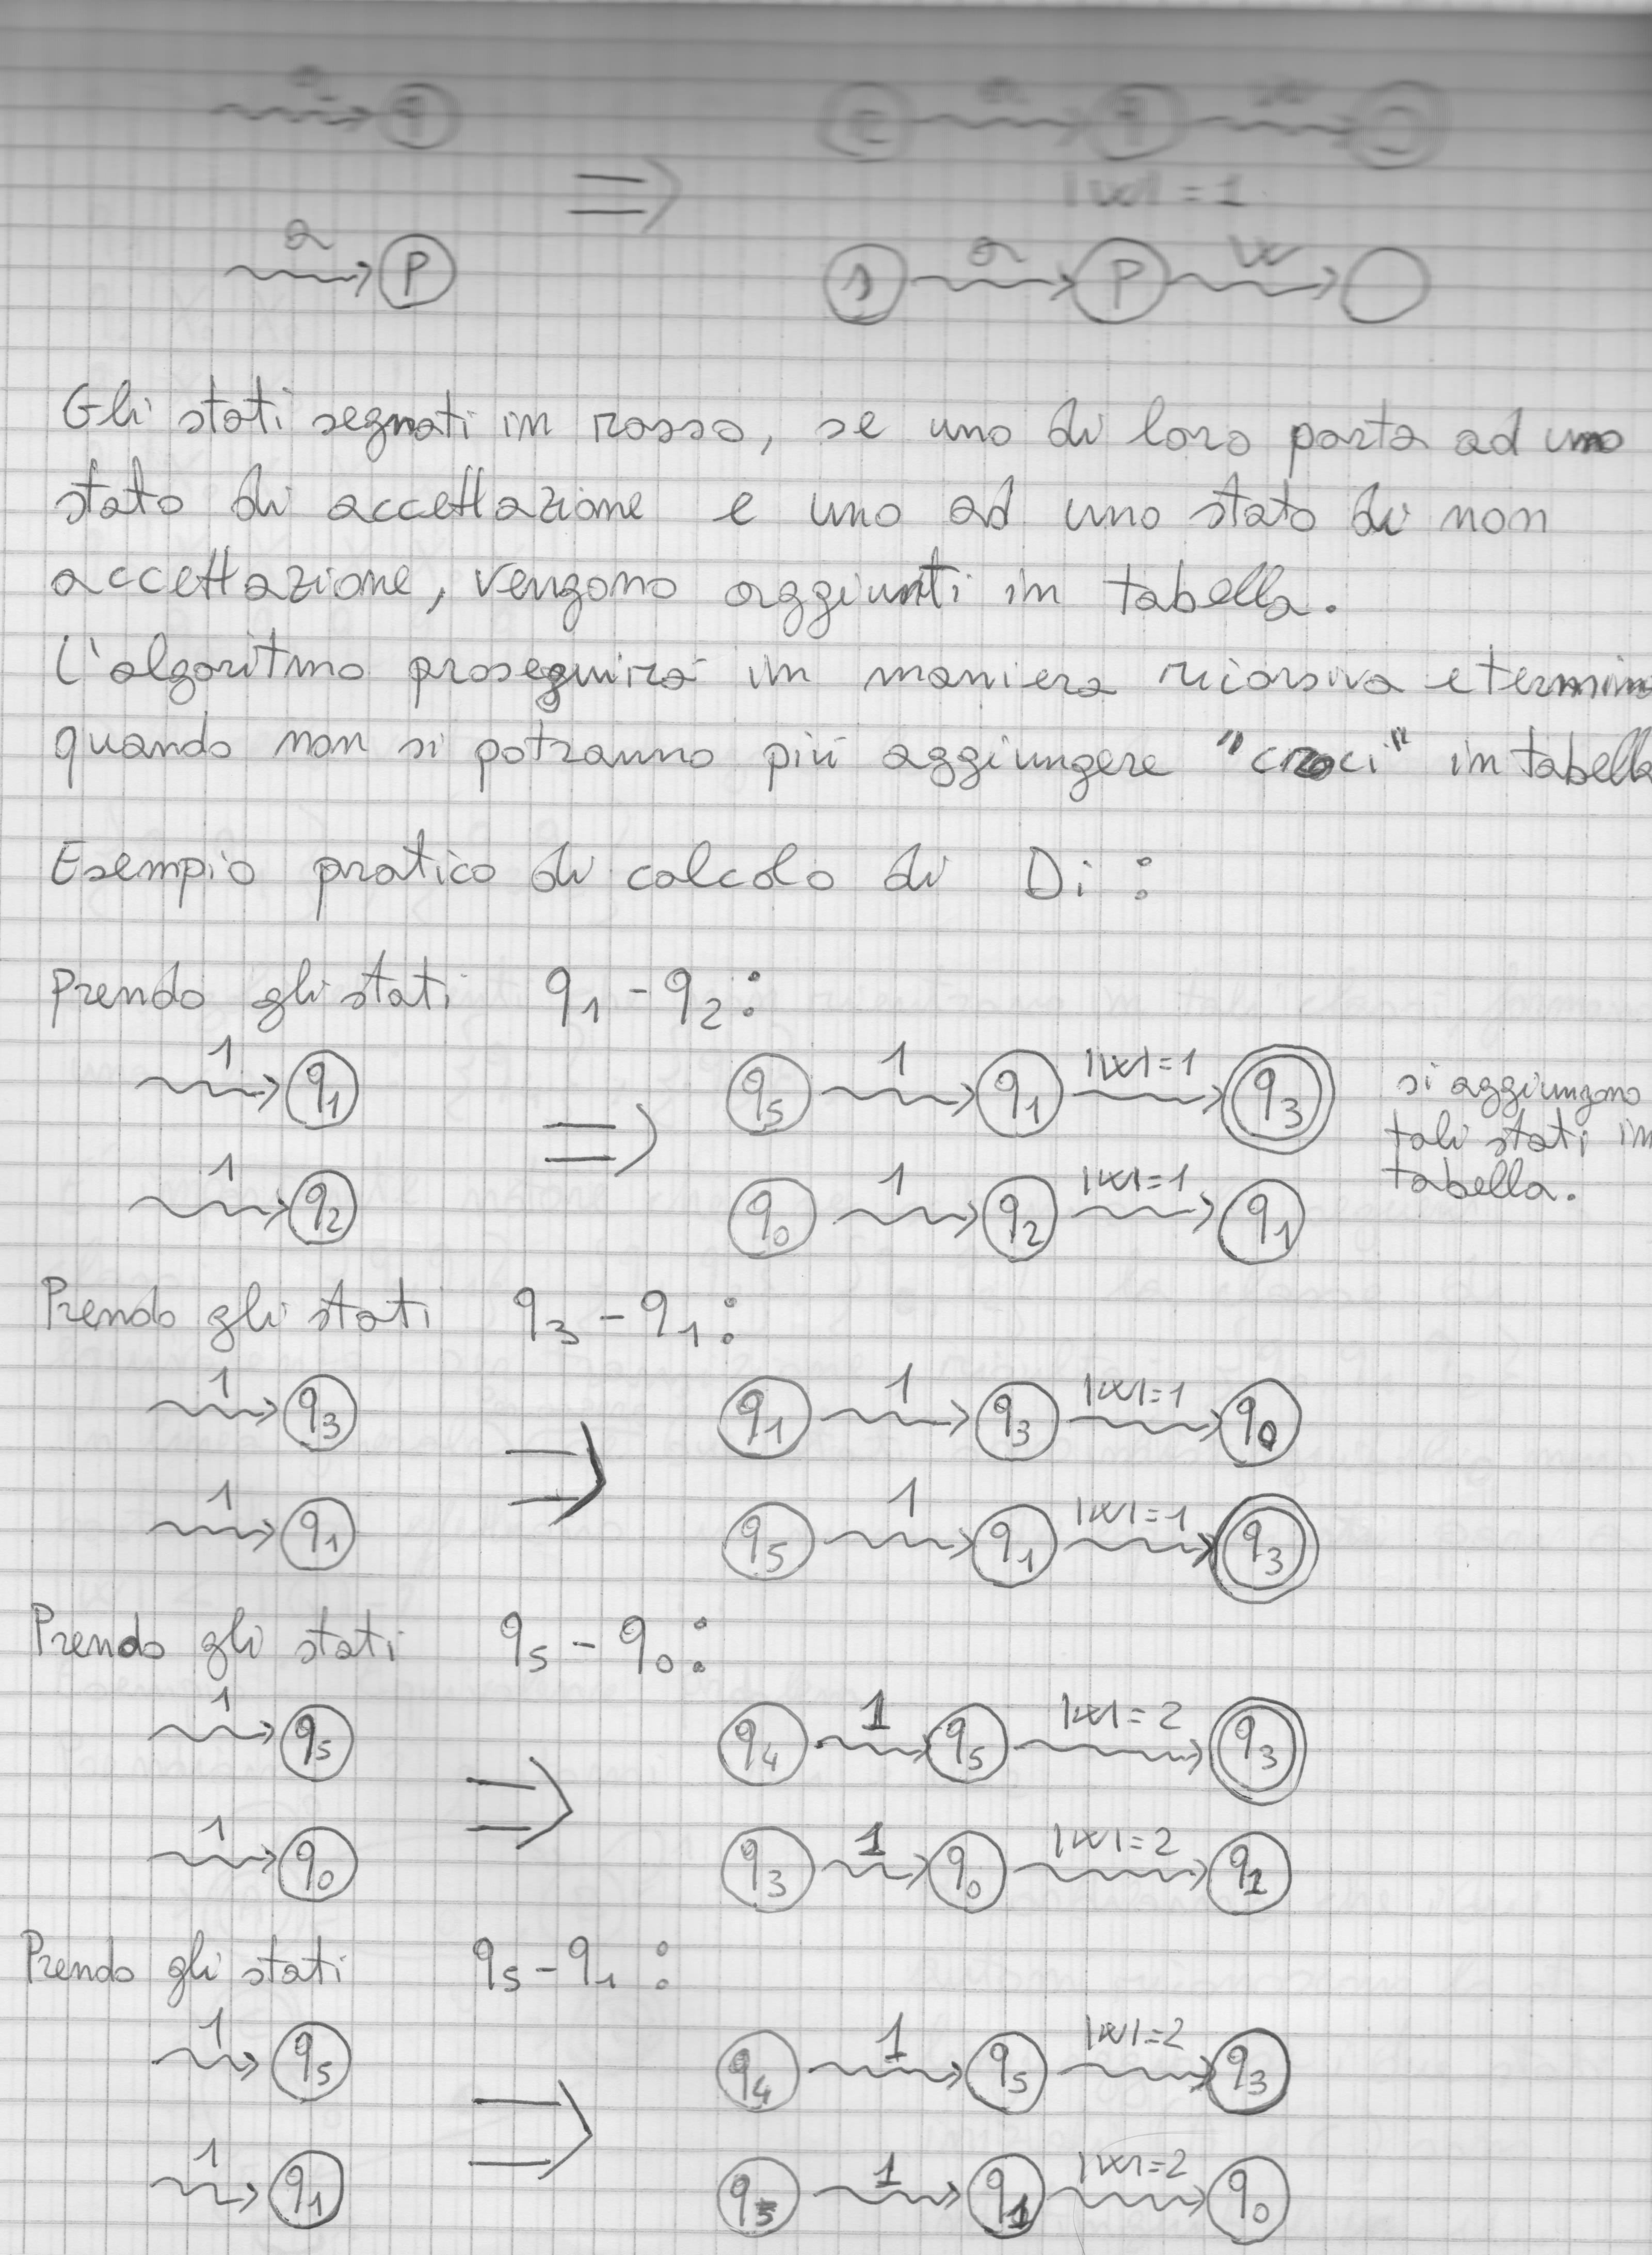 a
a
w
q
=>
|w| = 1
a
a
w
P
s
P
Gli stati segnati in rosso, se uno di loro porta ad uno
stato di accettazione e uno ad uno stato di non
accettazione, vengono aggiunti in tabella.
L'algoritmo proseguirà in maniera ricorsiva e termin
quando non si potranno più aggiungere "croci" in tabella
Esempio pratico di calcolo di Di :
Prendo gli stati q1 - q2 :
1 q1 q5 1 q1 |w|=1 q3 si aggiungono
=> tali stati in
1 q2 q0 1 q2 |w|=1 q1 tabella.
Prendo gli stati q3 - q1 :
1 q3 q1 1 q3 |w|=1 q0
=>
1 q1 q5 1 q1 |w|=1 q3
Prendo gli stati q5 - q0 :
1 q5 q4 1 q5 |w|=2 q3
=>
1 q0 q3 1 q0 |w|=2 q1
Prendo gli stati q5 - q1 :
1 q5 q4 1 q5 |w|=2 q3
=>
1 q1 q5 1 q1 |w|=2 q0